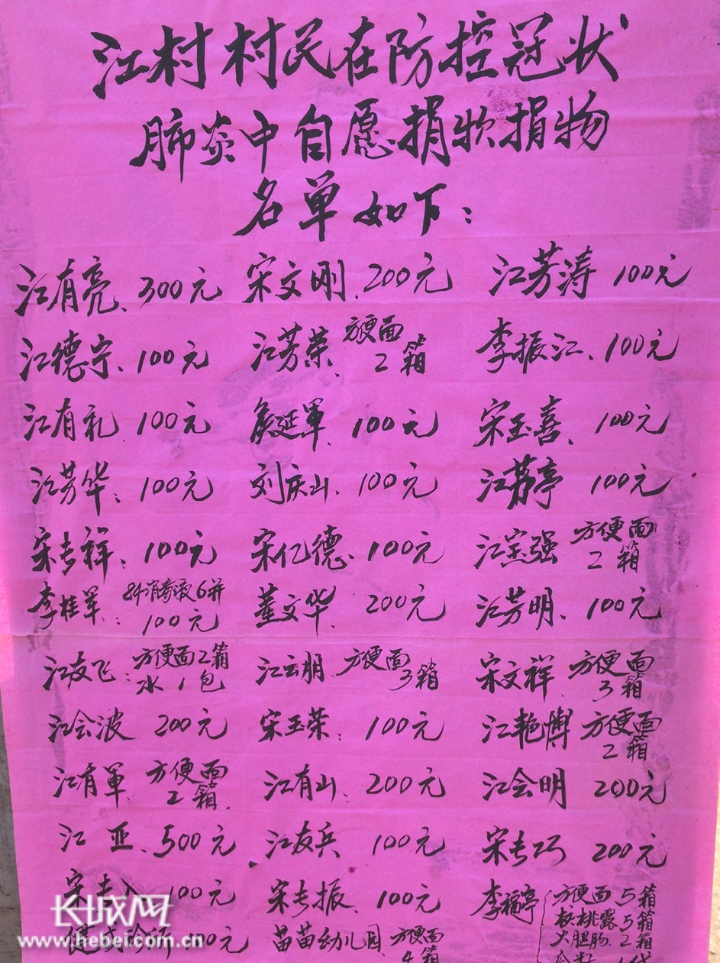 江村村民在防控冠状
肺炎中自愿捐款捐物
名单如下:
江有亮、300元 宋文刚、200元 江芳涛 100元
江德宁、100元 江芳荣、方便面2箱 李振江、100元
江有礼、100元 侯延軍、100元 宋玉善、100元
江芳华:100元 刘庆山、100元 江芳亭 100元
宋专祥:100元 宋亿德、100元 江宗强 方便面2箱
李桂军:84消毒液6瓶 100元 董文华、200元 江芳明、100元
江友飞:方便面2箱 水1包 江云朋 方便面3箱 宋文祥、方便面3箱
江会波 200元 宋玉荣、100元 江艳博 方便面2箱
江有軍、方便面2箱 江有山、200元 江会明 200元
江亚、500元 江友兵 100元 宋专巧 200元
宋专 100元 宋专振、100元 李福亭 方便面5箱
核桃露5箱
火腿肠2箱
健 诊所 元 苗苗幼儿园 方便面4箱
长城网
www.hebei.com.cn